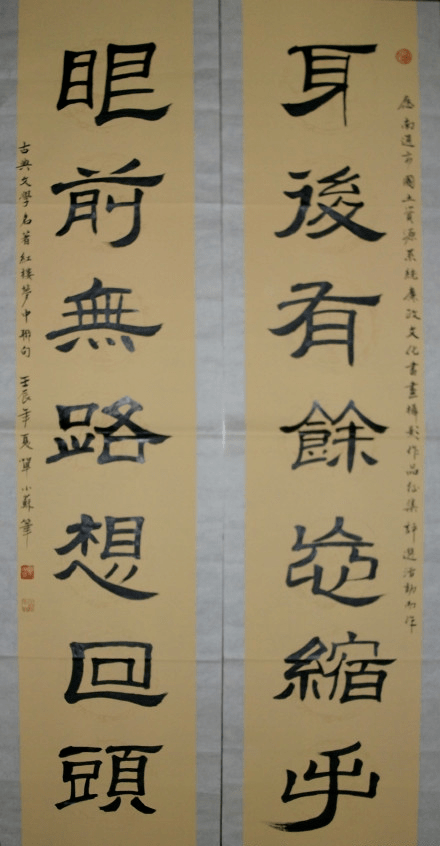 應南通市國土資源系統廉政文化書畫攝影作品征集評選活動而作
身後有餘忘縮手
眼前無路想回頭
古典文學名著紅樓夢中聯句 壬辰年夏 單小蘇筆